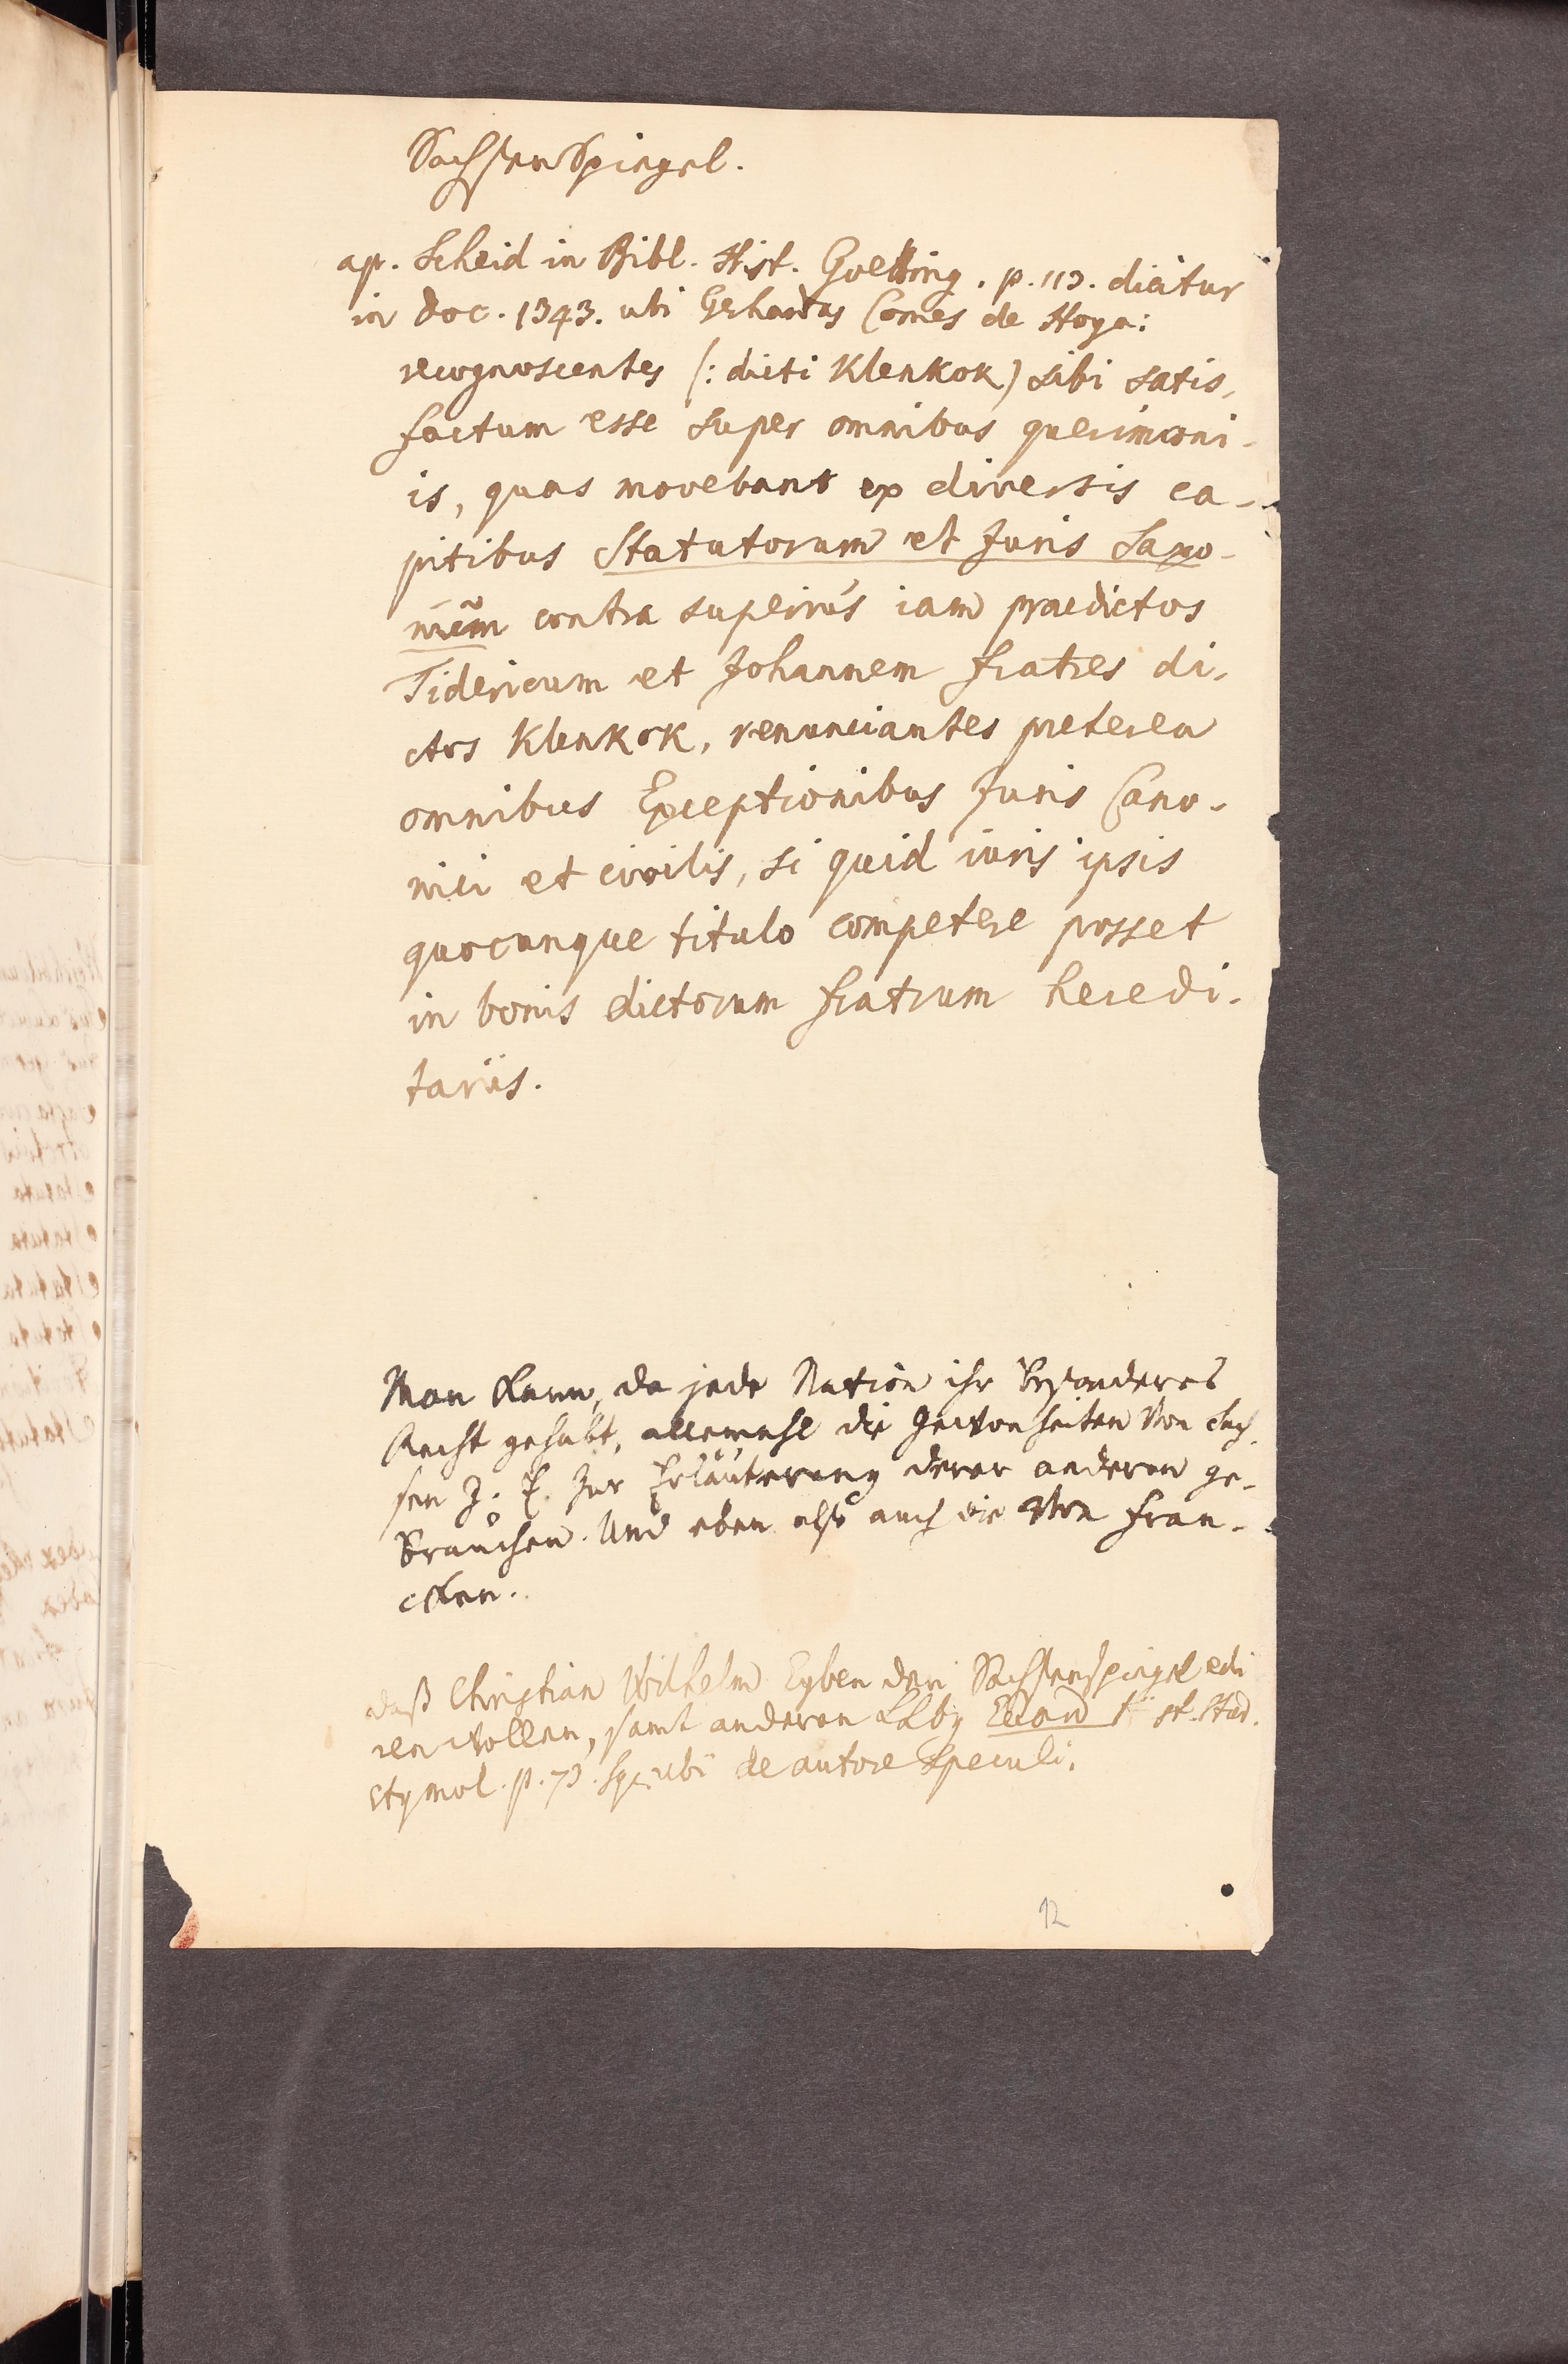 SachsenSpiegel.
ap. Scheid in Bibl. Hist. Goetting. p. 113. dicitur
in doc. 1343. ubi Gerhardus Comes de Hoya:
recognoscentes (: dicti Klenkok) sibi satis-
factum esse super omnibus querimoni-
is, quas movebant ex diversis ca-
pitibus Statutorum et Juris Saxo-
nicm contra superius iam praedictos
Tidericum et Johannem fratres di-
ctos Klenkok, renunciantes preterea
omnibus Exceptionibus Juris Cano-
nici et civilis, si quid iuris ipsis
quocunque titulo competere posset
in bonis dictorum fratrum heredi-
tariis.
Man kann, da jede Nation ihr besonderes
Recht gehabt, allemahl die Gewonheiten von Sach-
sen z. E. zur Erläuterung derer anderen ge-
brauchen. Und eben also auch die von Fran-
cken.
daß Christian Wilhelm Eyben den Sachsenspiegel edi
ren wollen, samt anderen LLbg st. Stad.
etymol. p. 73. sq. ubi de autore Speculi.
12